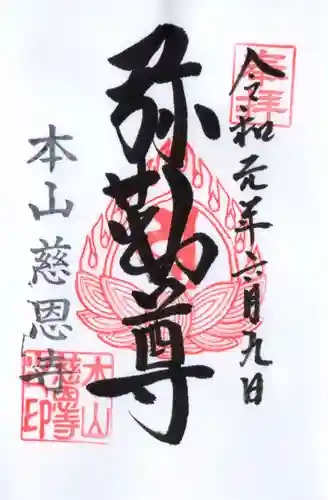 奉拝
令和元年六月九日
弥勒尊
本山慈恩寺
本山
慈恩寺
印